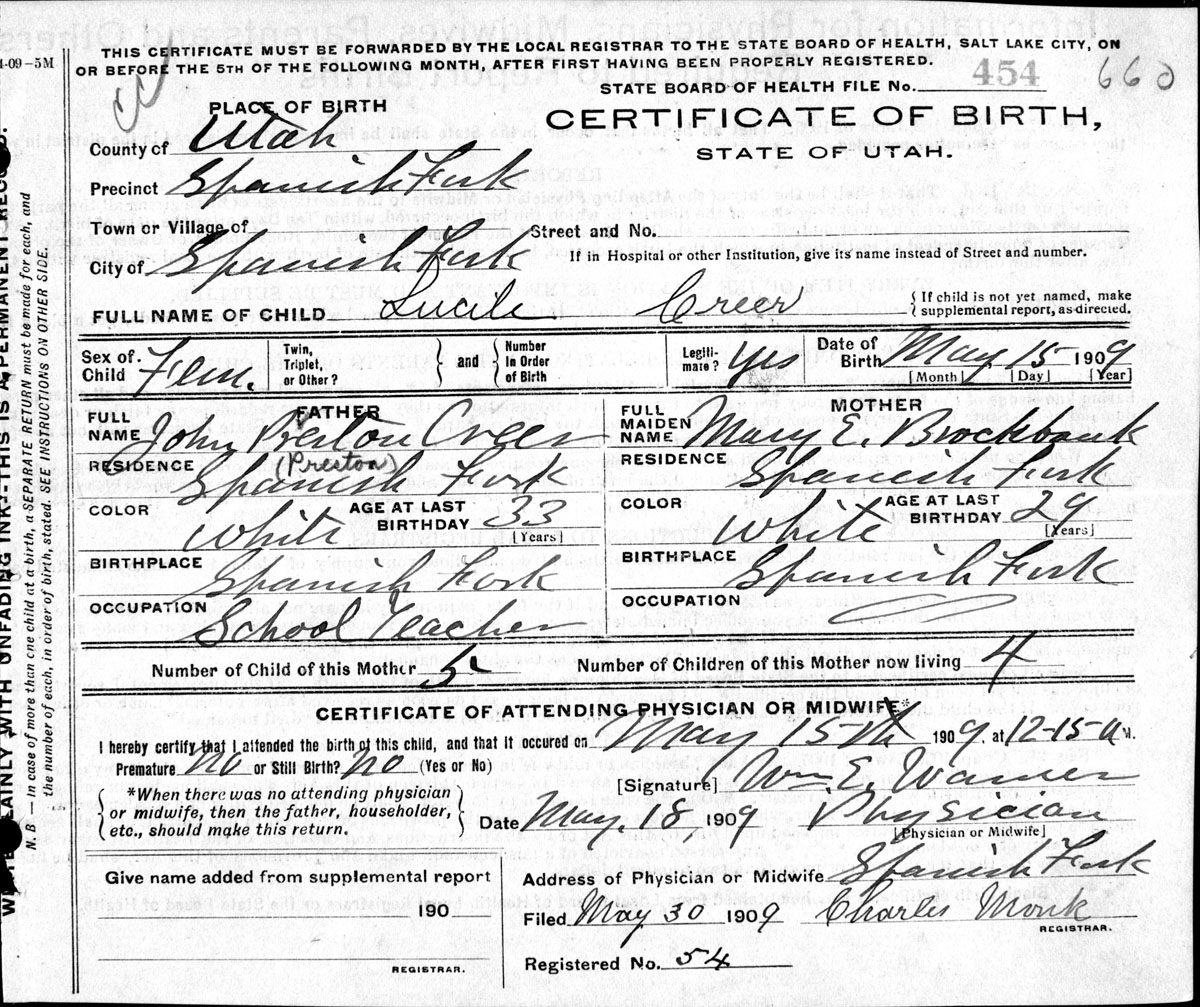 4-09-5M
THIS CERTIFICATE MUST BE FORWARDED BY THE LOCAL REGISTRAR TO THE STATE BOARD OF HEALTH, SALT LAKE CITY, ON
OR BEFORE THE 5TH OF THE FOLLOWING MONTH, AFTER FIRST HAVING BEEN PROPERLY REGISTERED.
STATE BOARD OF HEALTH FILE No. 454 660
PLACE OF BIRTH
CERTIFICATE OF BIRTH,
STATE OF UTAH.
County of Utah
Precinct Spanish Fork
Town or Village of
Street and No.
City of Spanish Fork
If in Hospital or other Institution, give its name instead of Street and number.
FULL NAME OF CHILD Lucile Creer
If child is not yet named, make supplemental report, as directed.
Sex of Child Fem.
Twin, Triplet, or Other?
and
Number In Order of Birth
Legiti-mate? Yes
Date of Birth May 15 1909
[Month] [Day] [Year]
FATHER
FULL NAME John Preston Creer
(Preston)
RESIDENCE Spanish Fork
COLOR White
AGE AT LAST BIRTHDAY 33
[Years]
BIRTHPLACE Spanish Fork
OCCUPATION School Teacher
MOTHER
FULL MAIDEN NAME Mary E. Brockbank
RESIDENCE Spanish Fork
COLOR White
AGE AT LAST BIRTHDAY 29
[Years]
BIRTHPLACE Spanish Fork
OCCUPATION
Number of Child of this Mother 5
Number of Children of this Mother now living 4
CERTIFICATE OF ATTENDING PHYSICIAN OR MIDWIFE*
I hereby certify that I attended the birth of this child, and that it occured on May 15th 1909. at 12-15-a M.
Premature No or Still Birth? No (Yes or No)
[Signature] Wm. E. Warner
*When there was no attending physician
or midwife, then the father, householder,
etc., should make this return.
Date May. 18 1909 Physician
[Physician or Midwife]
Give name added from supplemental report
190
REGISTRAR.
Address of Physician or Midwife Spanish Fork
Filed May 30 1909 Charles Monk
REGISTRAR.
Registered No. 54
PLAINLY WITH UNFADING INK—THIS IS A PERMANENT RECORD.
N. B.—In case of more than one child at a birth, a SEPARATE RETURN must be made for each, and
the number of each, in order of birth, stated. SEE INSTRUCTIONS ON OTHER SIDE.